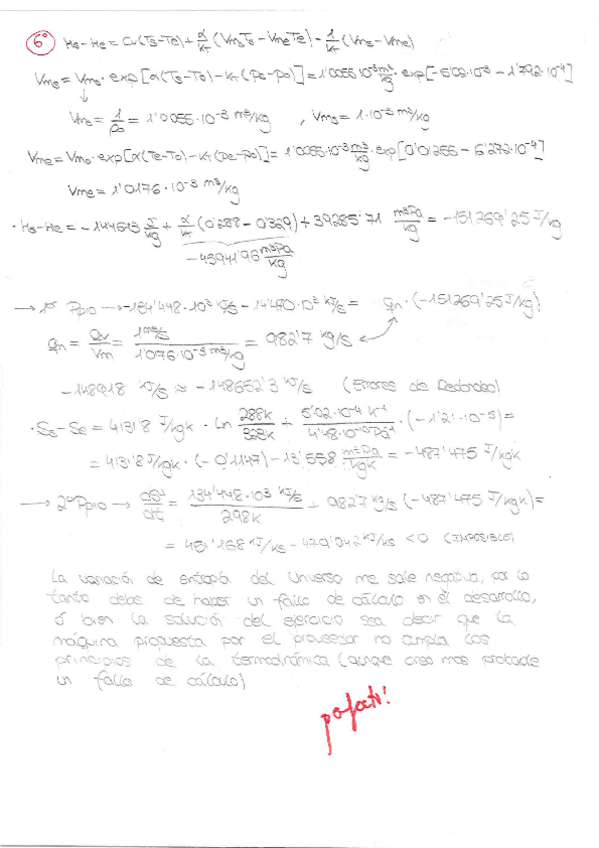 6º Hs-He = Cv(Ts-Te) + α/KT (VmsTs - VmeTe) - 1/KT (Vms - Vme)
Vms = Vm0 · exp[α(Ts-T0) - KT(ps-p0)] = 1'0055·10⁻³ m³/kg · exp[-5'02·10⁻³ - 1'792·10⁻⁴]
↓
Vm0 = 1/ρ0 = 1'0055·10⁻³ m³/kg , Vms = 1·10⁻³ m³/kg
Vme = Vm0 · exp[α(Te-T0) - KT(pe-p0)] = 1'0055·10⁻³ m³/kg · exp[0'01255 - 6'272·10⁻⁴]
Vme = 1'0176·10⁻³ m³/kg
· Hs-He = -144613 J/kg + α/KT (0'288 - 0'329) + 39285'71 m³Pa/kg = -151269'25 J/kg
-45941'96 m³Pa/kg
→ 1er Ppio → -134'448·10³ kJ/s - 14'470·10³ kJ/s = qn · (-151269'25 J/kg)
qn = qv/Vm = 1 m³/s / 1'0176·10⁻³ m³/kg = 982'7 kg/s
-148918 kJ/s ≈ -148652'3 kJ/s (Errores de Redondeo)
· Ss-Se = 4131'8 J/kgK · Ln 288K/323K + 5'02·10⁻⁴ K⁻¹ / 4'48·10⁻¹⁰ Pa⁻¹ · (-1'21·10⁻⁵) =
= 4131'8 J/kgK · (-0'1147) - 13'558 m³Pa/kgK = -487'475 J/kgK
→ 2º Ppio → dSu/dt = 134'448·10³ kJ/s / 298K + 982'7 kg/s (-487'475 J/kgK) =
= 451'168 kJ/Ks - 479'042 kJ/Ks < 0 (IMPOSIBLE)
La variación de entropía del Universo me sale negativa, por lo
tanto debe de haber un fallo de cálculo en el desarrollo,
ó bien la solución del ejercicio sea decir que la
máquina propuesta por el proveedor no cumpla los
principios de la termodinámica (aunque creo mas probable
un fallo de cálculo)